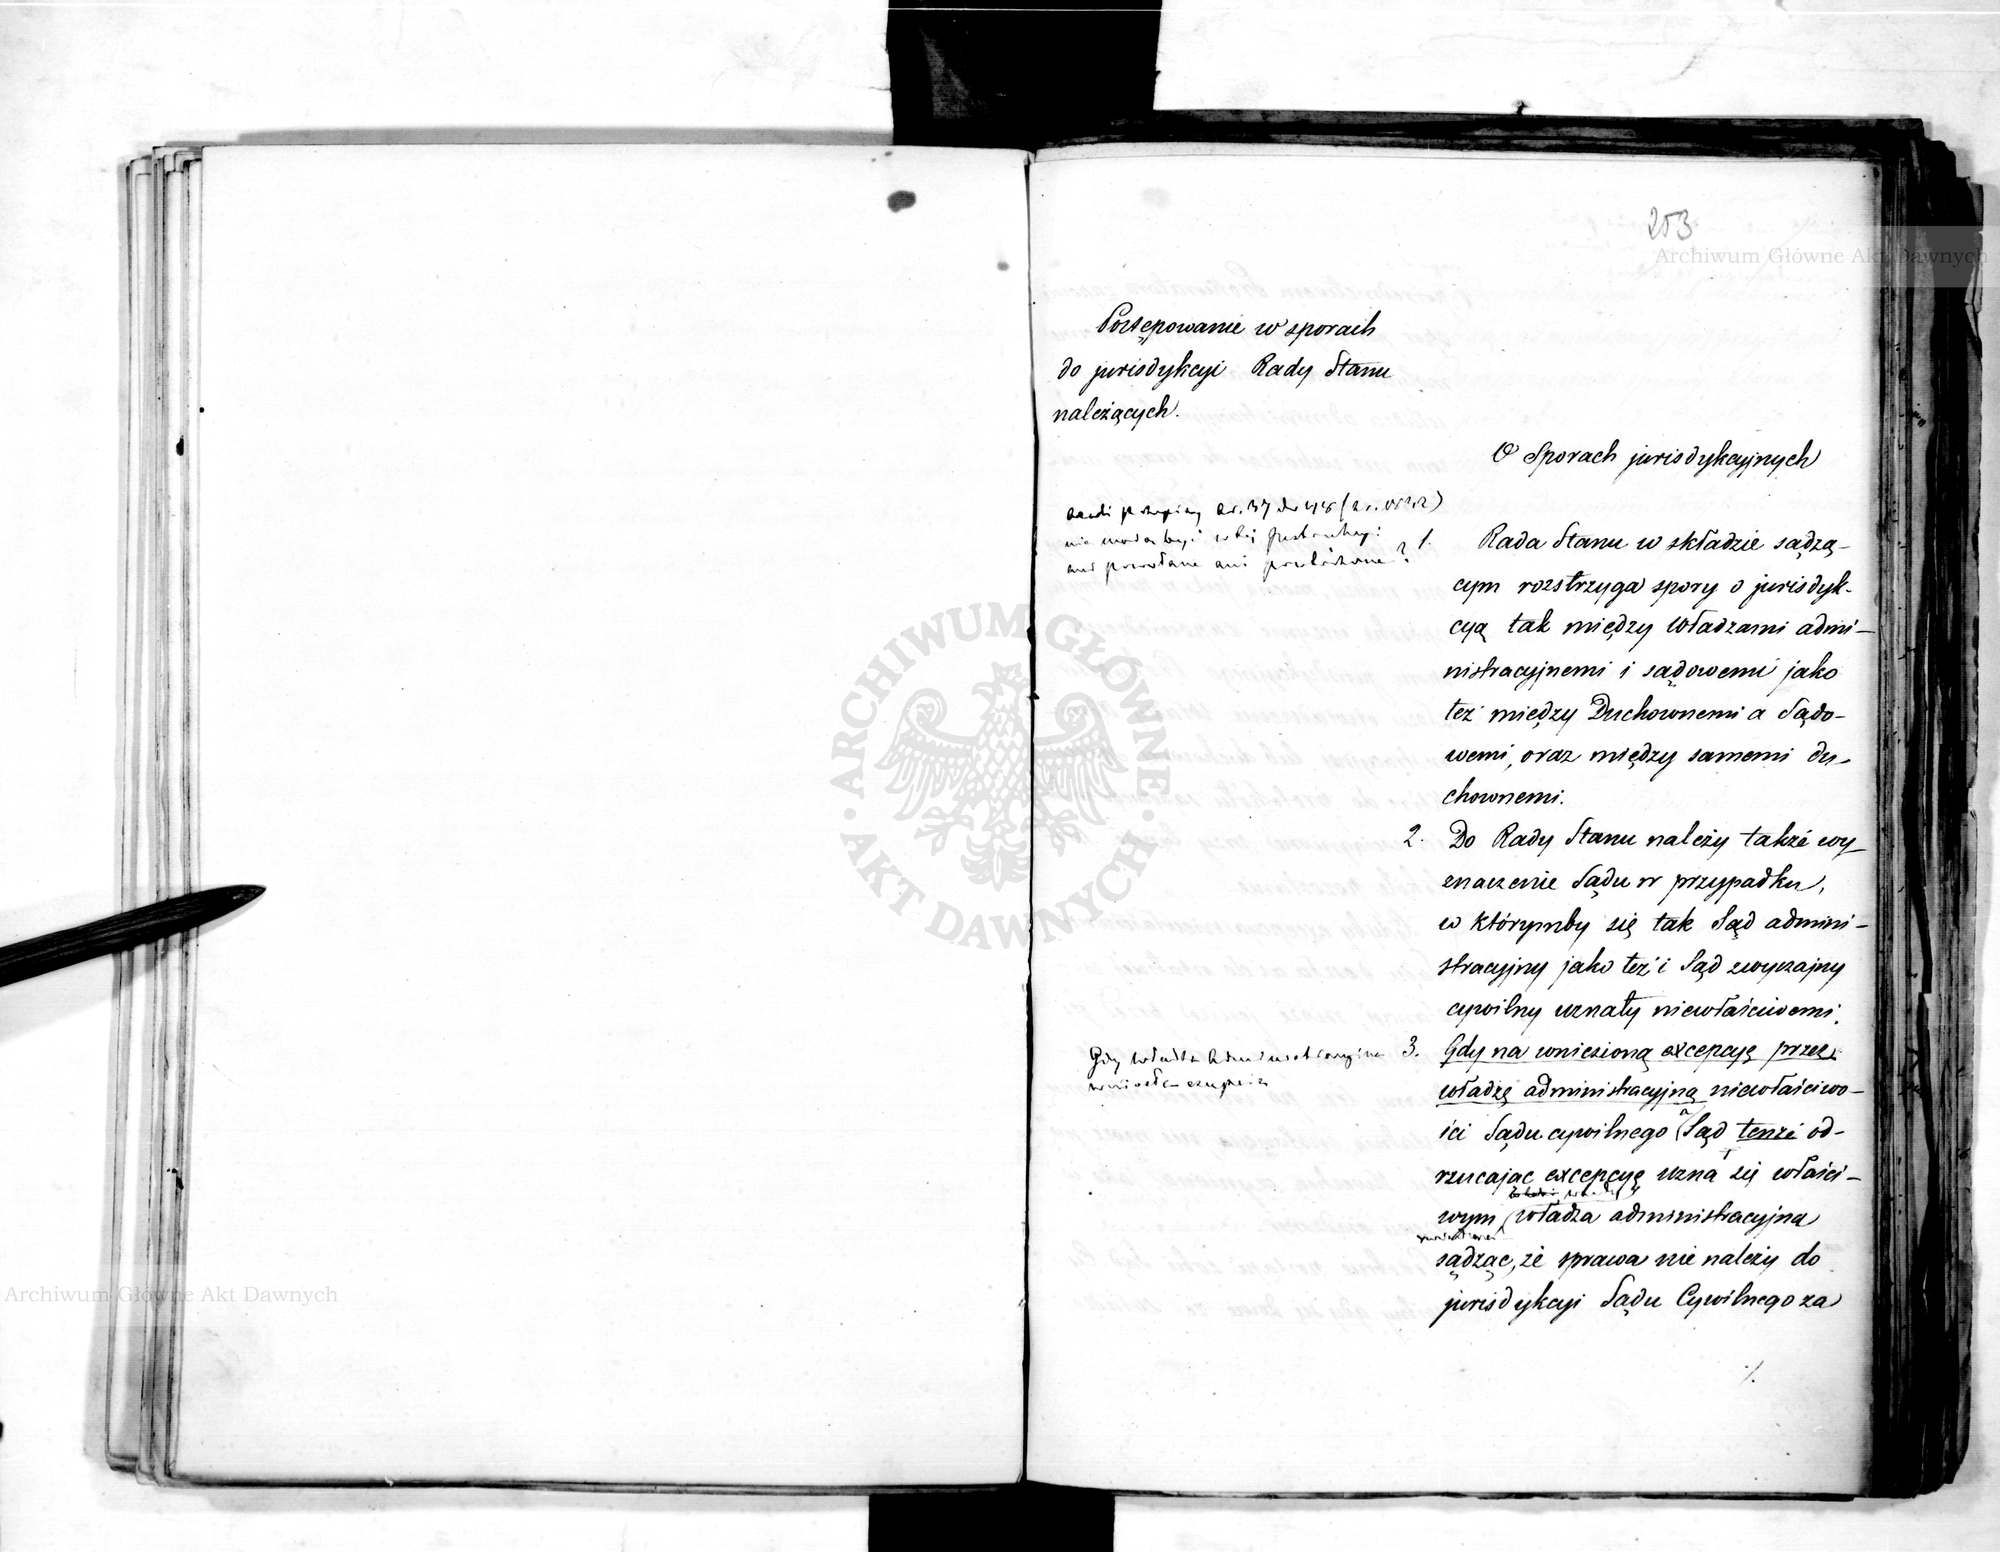 253
Archiwum Główne Akt Dawnych
Postępowanie w sporach
do jurisdykcyi Rady Stanu
należących.
O Sporach jurisdykcyjnych
nie mogą być w tej
ani powołane ani powtórzone ?
1. Rada Stanu w składzie sądzą-
cym rozstrzyga spory o jurisdyk-
cyą tak między Władzami admi-
nistracyjnemi i sądowemi jako
też między Duchownemi a Sądo-
wemi, oraz między samemi du-
chownemi.
2. Do Rady Stanu należy także wy-
znaczenie Sądu w przypadku,
w którymby się tak Sąd admini-
stracyjny jako też i Sąd zwyczajny
cywilny uznały niewłaściwemi.
Gdy władza Administracyjna
wniosła
3. Gdy na wniesioną excepcyę przez
władzę administracyjną niewłaściwo-
ści Sądu cywilnego a Sąd tenże od-
rzucając excepcyę uzna się właści-
wym władza administracyjna
sądząc, że sprawa nie należy do
jurisdykcyi Sądu Cywilnego za
./.
ARCHIWUM GŁÓWNE · AKT DAWNYCH ·
Archiwum Główne Akt Dawnych